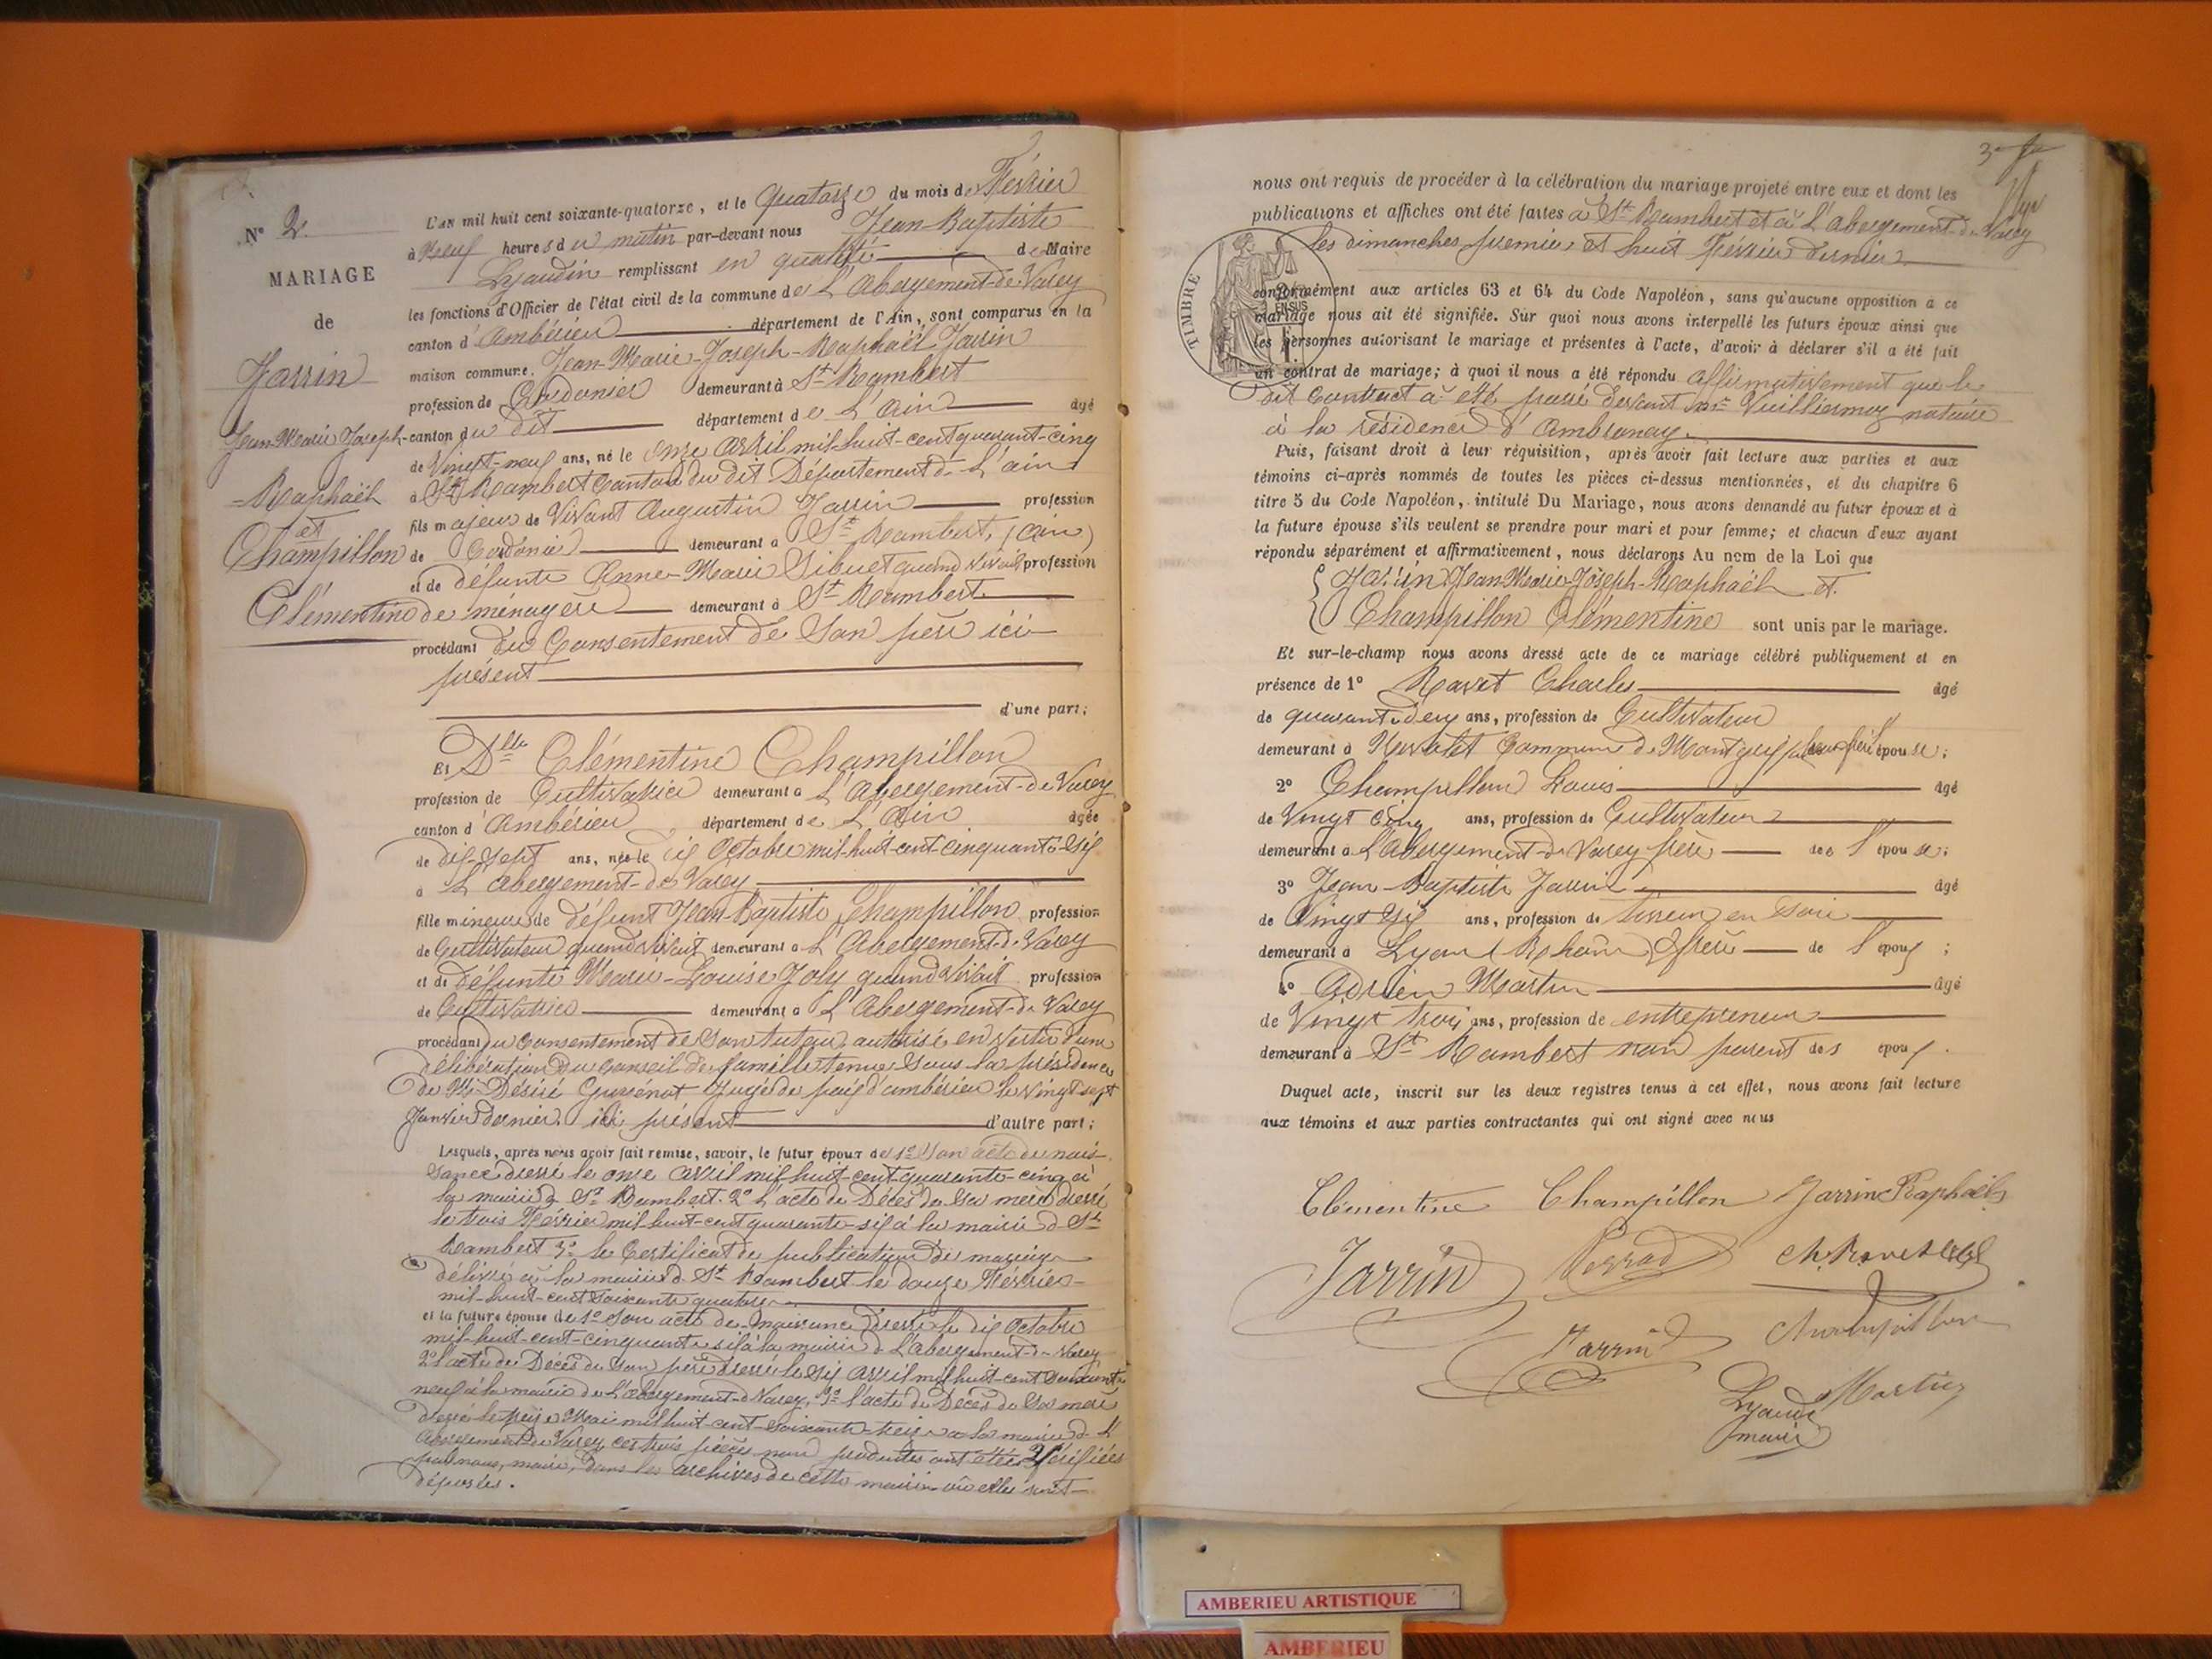 N° 2.
MARIAGE
de
Jarrin
Jean-Marie Joseph-
-Raphaël
et
Champillon
Clémentine
L'an mil huit cent soixante-quatorze, et le Quatorze du mois de Février
à Neuf heures du matin par-devant nous Jean-Baptiste
Lyaudin remplissant en qualité de Maire
les fonctions d'Officier de l'état civil de la commune de L'Abergement-de-Varey
canton d'Ambérieu département de l'Ain, sont comparus en la
maison commune, Jean-Marie-Joseph-Raphaël Jarrin
profession de Cordonier demeurant à St Rambert
canton du dit département de L'Ain âgé
de Vingt-neuf ans, né le onze Avril mil-huit-cent quarant-cinq
à St Rambert Canton du dit Département de L'ain
fils majeur de Vivant Augustin Jarrin profession
de Cordonier demeurant à St Rambert, (Ain)
et de défunte Anne-Marie Sibuet quand vivait profession
de ménagère demeurant à St Rambert
procédant du Consentement de Son père ici
présent
d'une part;
Et Dlle Clémentine Champillon
profession de Cultivatrice demeurant à L'Abergement-de-Varey
canton d'Ambérieu département de L'Ain âgée
de dix-sept ans, née le dix Octobre mil-huit-cent-cinquante-six
à L'Abergement-de-Varey
fille mineure de défunt Jean-Baptiste Champillon profession
de Cultivateur quand vivait demeurant à L'Abergement-de-Varey
et de défunte Marie-Louise Joly quand vivait profession
de Cultivatrice demeurant à L'Abergement-de-Varey
procédant du Consentement de Son tuteur autorisé en vertu d'une
délibération du Conseil de famille tenue Sous la présidence
de Mr Désiré Juge de paix d'ambérieu le vingt-sept
Janvier dernier, ici présent d'autre part;
Lesquels, après nous avoir fait remise, savoir, le futur époux de 1° Son acte de nais-
sance dressé le onze Avril mil-huit-cent-quarante-cinq à
la mairie de St Rambert. 2° L'acte de Décès de Sa mère dressé
le trois Février mil-huit-cent quarante-six à la mairie de St
Rambert 3° le Certificat de publication de mariage
délivré à la mairie de St Rambert le douze Février
mil-huit-cent soixante quatorze
et la future épouse de 1° Son acte de naissance dressé le dix Octobre
mil-huit-cent-cinquante six à la mairie de L'Abergement-de-Varey
2° l'acte de Décès de Son père dressé le six Avril mil-huit-cent soixante
neuf à la mairie de L'abergement-de Varey, 3° l'acte de Décès de Sa mère
dressé le treize Mai mil huit-cent-soixante-treize a la mairie de L'
Abergement-de Varey ces trois pièces non produites ont étés Vérifiées
par nous, maire, dans les archives de cette mairie où elles sont
déposées.
nous ont requis de procéder à la célébration du mariage projeté entre eux et dont les
publications et affiches ont été faites à St Rambert et à L'abergement-de Varey
les dimanches premier et huit Février dernier
TIMBRE
EN SUS
conformément aux articles 63 et 64 du Code Napoléon, sans qu'aucune opposition à ce
mariage nous ait été signifiée. Sur quoi nous avons interpellé les futurs époux ainsi que
les personnes autorisant le mariage et présentes à l'acte, d'avoir à déclarer s'il a été fait
un contrat de mariage; à quoi il nous a été répondu affirmativement que le
dit Contract à été passé devant Mr Vuilliermoz notaire
à la résidence d'Ambronay.
Puis, faisant droit à leur réquisition, après avoir fait lecture aux parties et aux
témoins ci-après nommés de toutes les pièces ci-dessus mentionnées, et du chapitre 6
titre 5 du Code Napoléon, intitulé Du Mariage, nous avons demandé au futur époux et à
la future épouse s'ils veulent se prendre pour mari et pour femme; et chacun d'eux ayant
répondu séparément et affirmativement, nous déclarons Au nom de la Loi que
Jarrin Jean-Marie-Joseph-Raphaël et
Champillon Clémentine sont unis par le mariage.
Et sur-le-champ nous avons dressé acte de ce mariage célébré publiquement et en
présence de 1° Ravet Charles âgé
de quarant-deux ans, profession de Cultivateur
demeurant à Commune de épouse;
2° Champillon Louis âgé
de Vingt Cinq ans, profession de Cultivateur
demeurant à L'Abergement-de Varey frère de l'épouse;
3° Jean-Baptiste Jarrin âgé
de Vingt Six ans, profession de tisseur en Soie
demeurant à Lyon (Rhône) frère de l'époux;
4° Adrien Martin âgé
de Vingt trois ans, profession de entrepreneur
demeurant à St Rambert non parent des époux.
Duquel acte, inscrit sur les deux registres tenus à cet effet, nous avons fait lecture
aux témoins et aux parties contractantes qui ont signé avec nous
Clémentine Champillon Jarrin Raphaël
Jarrin Ch. Ravet
Jarrin Champillon
Martin
Lyaudin
maire
AMBERIEU ARTISTIQUE
AMBERIEU